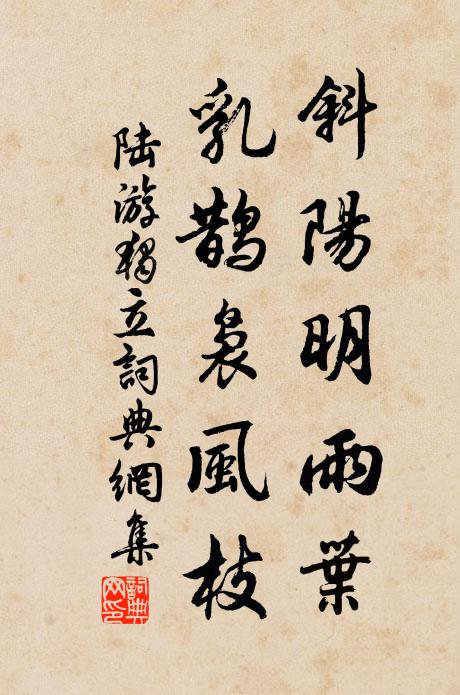 斜陽明雨葉
乳鵲裊風枝
陸游獨立詞典網集
詞典网印